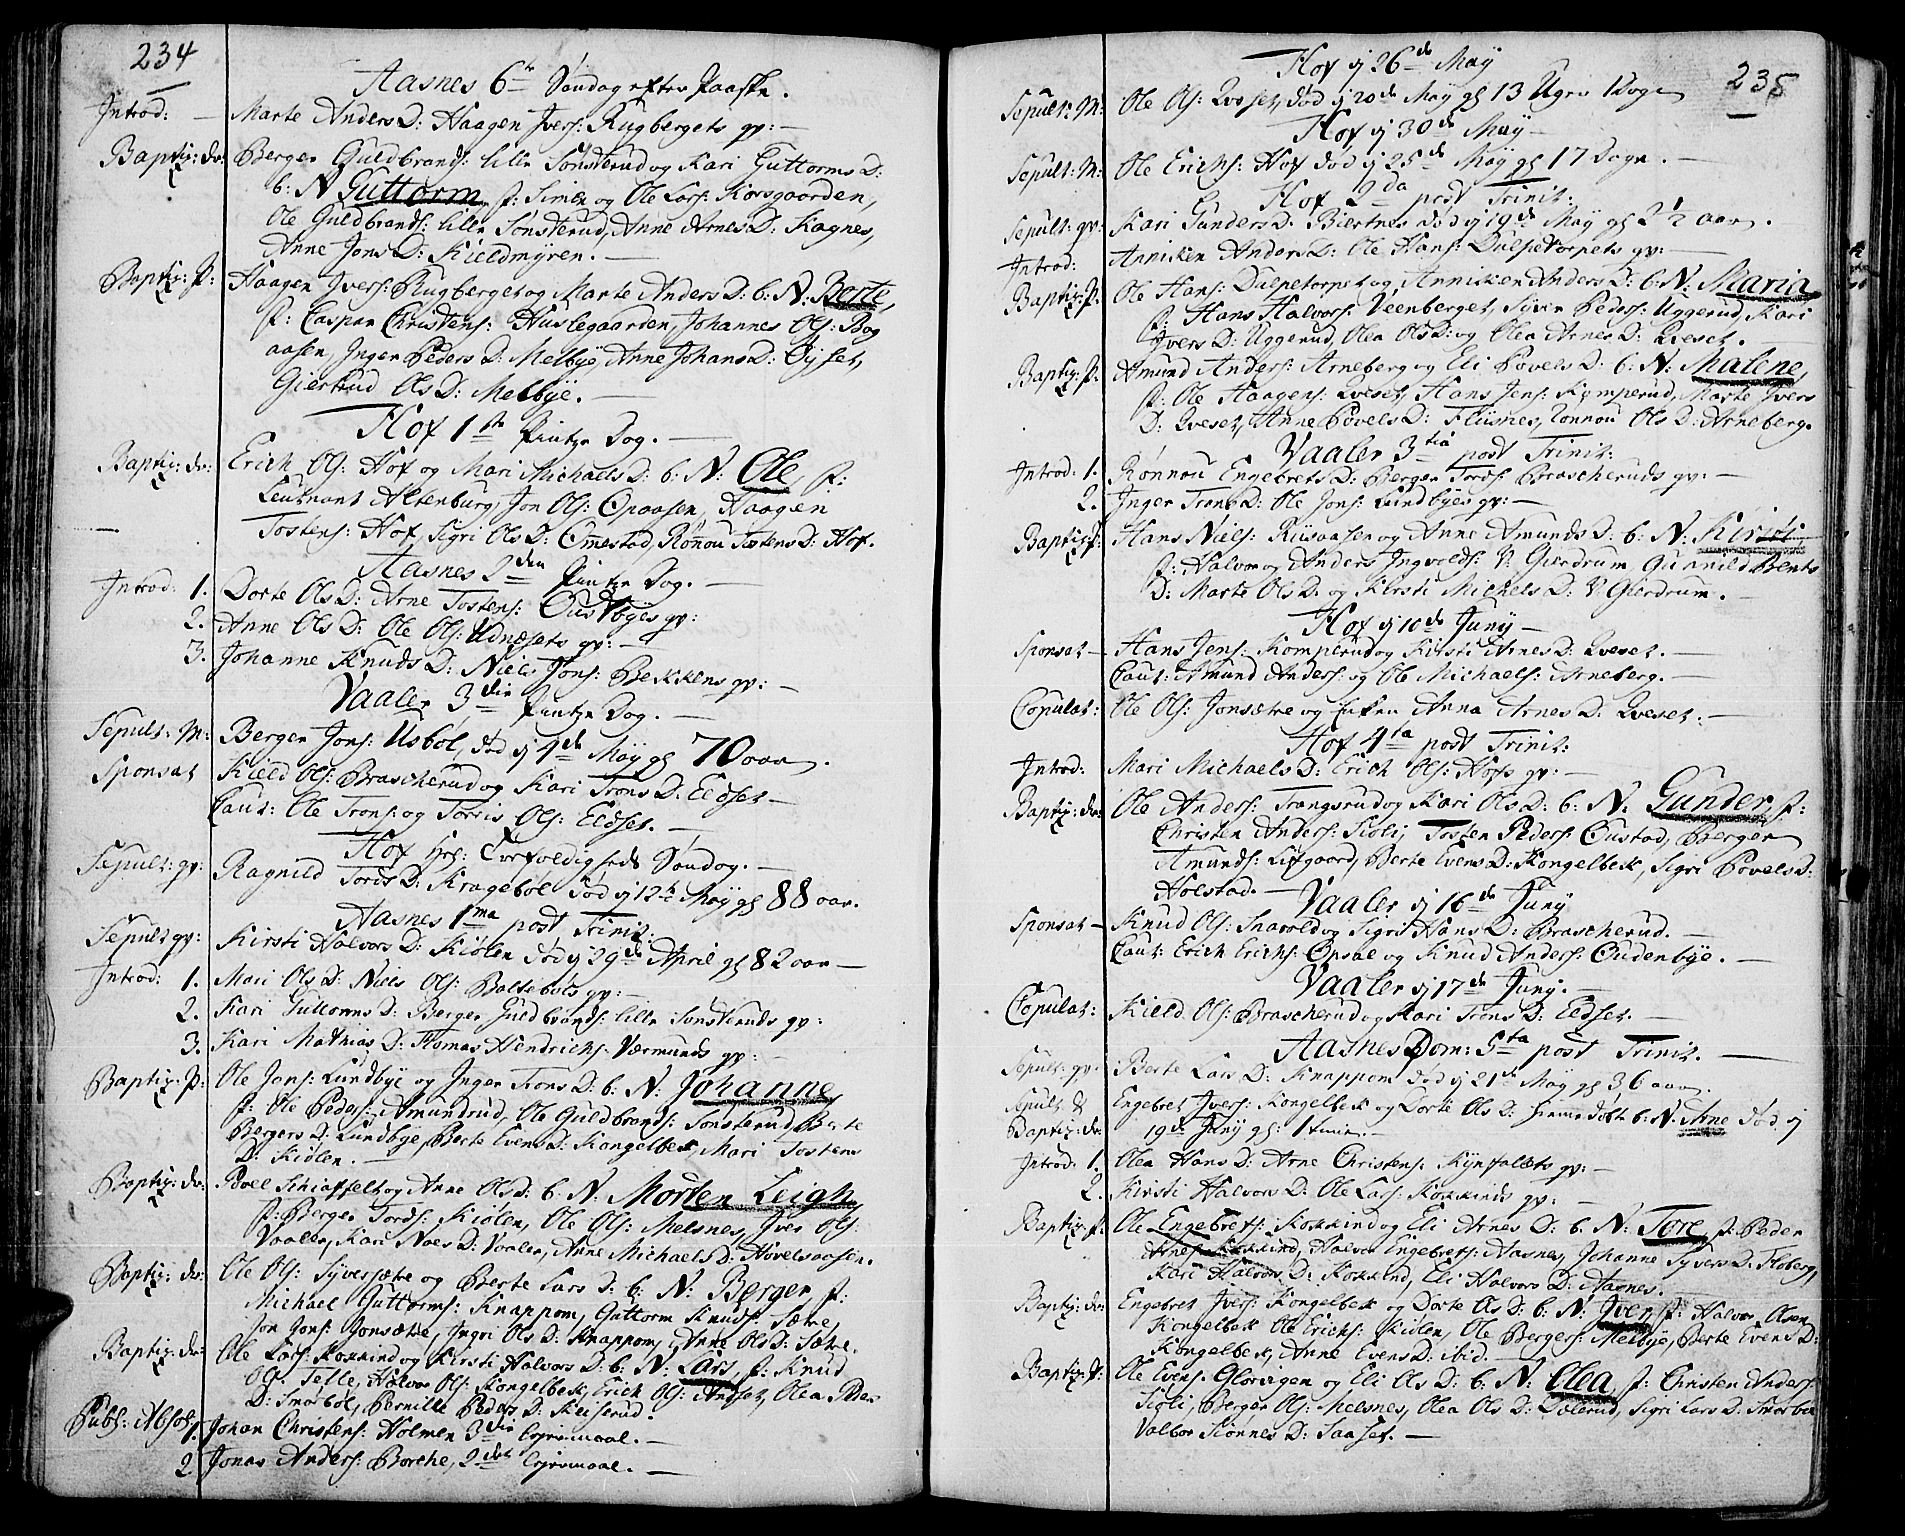 234
Aasnes 6te Søndag efter Paaske.
Introd: — Marte Anders D: Haagen Ivers: Rugbergets qv: —
Baptiz: dr: Berger Guldbrands: lille Sønsterud og Kari Guttorms D:
b: N Guttorm f: Simen og Ole Lars: Korsgaarden,
Ole Guldbrands: lille Sønsterud, Anne Arnes D: Kagnes,
Anne Jons D: Kieldmyren. —
Baptiz: P: Haagen Ivers: Rugberget og Marte Anders D: b: N: Berte,
f: Caspar Christens: Huslegaarden, Johannes Ols: Bog
aasen, Inger Peders D: Melbye, Anne Johans D: Øyset,
Giertrud Ols D: Melbye. —
Hof 1ste Pintze Dag. —
Baptiz: dr: Erich Ols: Hof og Mari Michaels D: b: N: Ole, f:
Leutnant Altenburg, Jon Ols: Opaasen, Haagen
Tostens: Hof, Sigri Ols D: Omestad, Rønnou Tostens D: Hof.
Aasnes 2den Pintze Dag. —
Introd: 1. Dorte Ols D: Arne Tostens: Oustbyes qv:
2. Anne Ols D: Ole Ols: Udnæsets qv: —
3. Johanne Knuds D: Niels Jons: Bekkens qv: —
Vaaler 3die Pintze Dag. —
Sepult: M: Berger Jons: Usbøl, død d 4de May gl 70 aar.
Sponsat Kield Ols: Brascherud og Kari Trons D: Eldset —
Caut: Ole Trons: og Torris Ols: Eldset. —
Hof Hel: Trefoldigheds Søndag. —
Sepult: qv: Ragnild Tords D: Kragebøl død d 12te May gl 88 aar.
Aasnes 1ma post Trinit:
Sepult qv: Kirsti Halvors D: Kiølen død d 29de April gl 82 aar —
Introd: 1. Mari Ols D: Niels Ols: Baltebøls qv: —
2. Kari Guttorms D: Berger Guldbrands: lille Sønsteruds qv:
3. Kari Mathias D: Thomas Hendrichs: Værmunds qv: —
Baptiz: P: Ole Jons: Lundbye og Inger Trons D: b: N: Johanne,
f: Ole Peders: Amundrud, Ole Guldbrands: Sønsterud, Berte
Bergers D: Lundbye, Berte Evens D: Kongelbek, Mari Tostens
D: Kiølen. —
Baptiz: dr: Povel Schiasselt og Anne Ols D: b: N: Morten Leigh,
f: Berger Tords: Kiølen, Ole Ols: Melsnes, Iver Ols:
Vaaler, Kari Naes D: Vaaler, Anne Michaels D: Hovelsaasen.
Baptiz: dr: Ole Ols: Syversætre og Berte Lars D: b: N: Berger, f:
Michael Guttorms: Knappom, Guttorm Knuds: Sætre,
Jon Jons: Jonsætre, Ingri Ols D: Knappom, Anne Ols D: Sætre.
Baptiz: dr: Ole Lars: Kokkind og Kirsti Halvors D: b: N: Lars, f: Knud
Ols: Telle, Halvor Ols: Kongelbek, Erich Ols: Andset, Olea Peder
D: Smøbøl, Pernille Peders D: Keiserud.
Publ: Absol: 1. Johan Christens: Holmen 3die Leyermaal. —
2. Jonas Anders: Borche, 2det Leyermaal. —
235
Hof d 26de May
Sepult: M: Ole Ols: Qveset, død d 20de May gl 13 Uger 1 Dage
Hof d 30de May —
Sepult: M: Ole Erichs: Hof død d 25de May gl 17 Dage. —
Hof 2da post Trinit:
Sepult: qv: Kari Gunders D: Biertnes død d 19de May gl 2 1/2 aar.
Introd: Anniken Anders D: Ole Hans: Dulpetorpets qv: —
Baptiz: P: Ole Hans: Dulpetorpet og Anniken Anders D: b: N: Maria
f: Hans Halvors: Veenberget, Syver Peders: Uggerud, Kari
Ivers D: Uggerud, Olea Ols D: og Olea Arnes D: Qveset. —
Baptiz: P: Amund Anders: Arneberg og Eli Povels D: b: N: Malene,
f: Ole Haagens: Qveset, Hans Jens: Komperud, Marte Ivers
D: Qveset, Anne Povels D: Fliisnes, Rønnou Ols D: Arneberg.
Vaaler 3tia post Trinit:
Introd: 1. Rønnou Engebrets D: Berger Tords: Brascheruds qv: —
2. Inger Trons D: Ole Jons: Lundbyes qv: —
Baptiz: P: Hans Niels: Riisaasen og Anne Amunds D: b: N: Kirsti
f: Halvor og Anders Ingvolds: V: Gierdrum, Gunnild Bents
D: Marte Ols D: og Kirsti Michels D: V: Gierdrum. —
Hof d 10de Juny —
Sponsat — Hans Jens: Komperud og Kirsti Arnes D: Qveset. —
Caut: Amund Anders: og Ole Michaels: Arneberg. —
Copulat: Ole Ols: Jonsætre og Enken Anna Arnes D: Qveset. —
Hof 4ta post Trinit:
Introd: Mari Michaels D: Erich Ols: Hofs qv: —
Baptiz: dr: Ole Anders: Trangsrud og Kari Ols D: b: N: Gunder, f:
Christen Anders: Sioli, Tosten Peders: Oustad, Berger
Amunds: Lifgaard, Berte Evens D: Kongelbek, Sigri Povels D:
Holstad. —
Vaaler d 16de Juny
Sponsat — Knud Ols: Snarold og Sigri Hans D: Brascherud. —
Caut: Erich Erichs: Opsal og Knud Anders: Oudenbye. —
Vaaler d 17de Juny. —
Copulat: Kield Ols: Brascherud og Kari Trons D: Eldset —
Aasnes Dom: 5ta post Trinit. —
Sepult: qv: Berte Lars D: Knappom død d 21de May gl 36 aar.
Sepult & Engebret Ivers: Kongelbek og Dorte Ols D: hiemedøbt b: N: Arne død d
Baptiz: dr: 19de Juny gl: 1 time. —
Introd: 1. Olea Hans D: Arne Christens: Kynsalæts qv: —
2. Kirsti Halvors D: Ole Lars: Kokkinds qv: —
Baptiz: P: Ole Engebrets: Kokkind og Eli Arnes D: b: N: Tore, f: Peder
Arnes: Kokkind, Halvor Engebrets: Aasnes, Johanne Syvers D: Floberg,
Kari Halvors D: Kokkind, Eli Halvors D: Aasnes.
Baptiz: dr: Engebret Ivers: Kongelbek og Dorte Ols D: b: N: Iver, f: Halvor Olsen
Kongelbek Ole Erichs: Kiølen, Ole Bergers: Melbye, Berte Evens D:
Kongelbek, Anne Evens D: ibid. —
Baptiz: P: Ole Evens: Glorvigen og Eli Ols D: b: N: Olea, f: Christen Anders:
Sioli, Berger Ols: Melsnes, Olea Ols D: Dølerud, Sigri Lars D: Smørbøl
Valbor Kiønnes D: Saaset. —